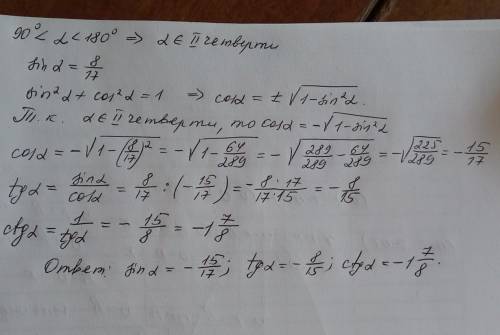 90° < α < 180° ⇒ α ∈ II четверти
sin α = 8/17
sin²α + cos²α = 1 ⇒ cos α = ± √(1 - sin²α).
Т. к. α ∈ II четверти, то cos α = -√(1 - sin²α)
cos α = -√(1 - (8/17)²) = -√(1 - 64/289) = -√(289/289 - 64/289) = -√(225/289) = -15/17
tg α = sin α/cos α = 8/17 : (-15/17) = -8·17/17·15 = -8/15
ctg α = 1/tg α = -15/8 = -1 7/8
Ответ: sin α = -15/17; tg α = -8/15; ctg α = -1 7/8.